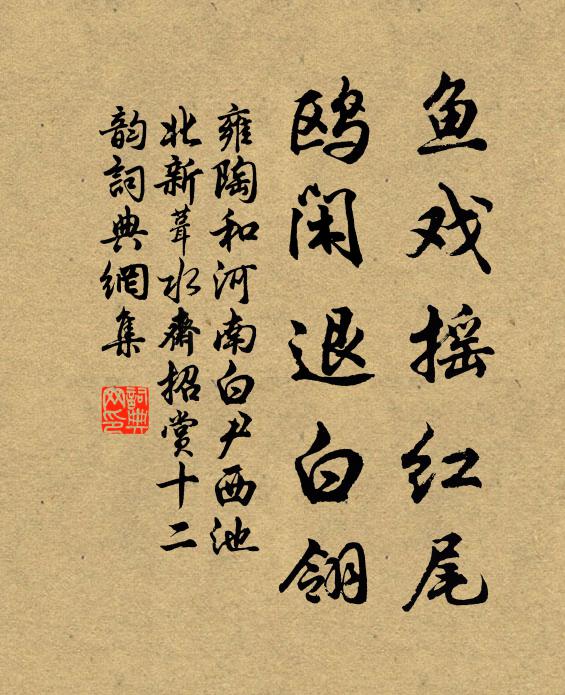 鱼戏摇红尾
鸥闲退白翎
雍陶和河南白尹西池
北新葺水齋招赏十二
韵詞典網集
詞典
网印